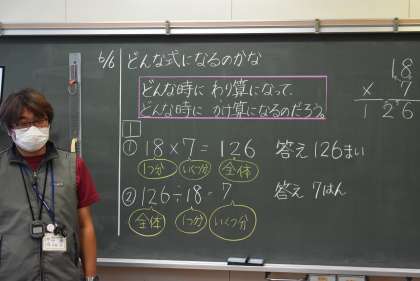 6/6 どんな式になるのかな
どんな時に わり算になって、
どんな時に かけ算になるのだろう。
1
① 18×7=126 答え 126まい
1つ分 いくつ分 全体
② 126÷18=7 答え 7はん
全体 1つ分 いくつ分
18
× 7
126